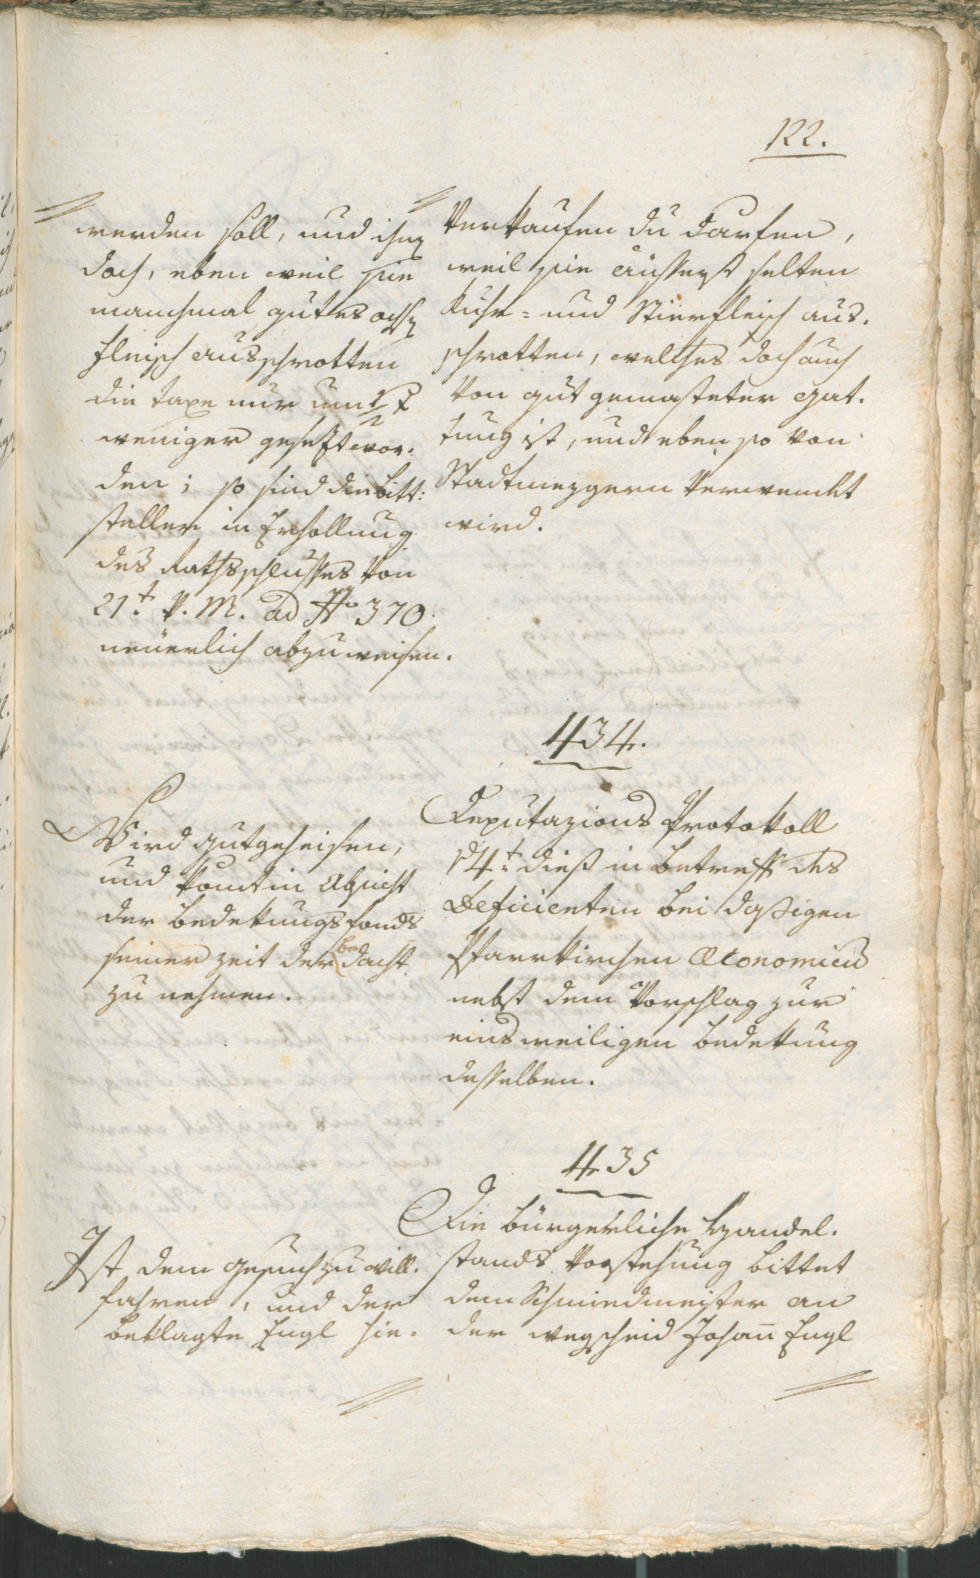 122.
werden soll, und ihnen
doch, eben weil sie
manchmal gutes ochsen
fleisch ausschrotten
die taxe nur um
weniger gesezt wor-
den; so sind die bitt-
steller in Erhollung
des Rathsschlusses von
21t. v. M. ad No 370
neuerlich abzuweisen.
verkaufen zu darfen,
weil sie äusserst selten
Kuhe- und Stierfleisch aus-
schrotten, welches doch auch
von gut gemästeter Gat-
tung ist, und eben so von
Stadtmezgern verwendet
wird.
434.
Wird gutgeheisen,
und kömt in Absicht
der bedekungsfonds
seiner zeit der bedacht
zu nehmen.
Deputazions Protokoll
dieß in betreff des
Deficienten bei dasigen
Pfarrkirchen Œconomien
nebst dem Vorschlag zur
einsweiligen bedekung
desselben.
435
Ist dem gesuch zu will-
fahren, und der
beklagte Engl hie-
Die bürgerliche Handel-
stands Vorstehung bittet
dem Schmiedmeister an
der wegscheid Johann Engl